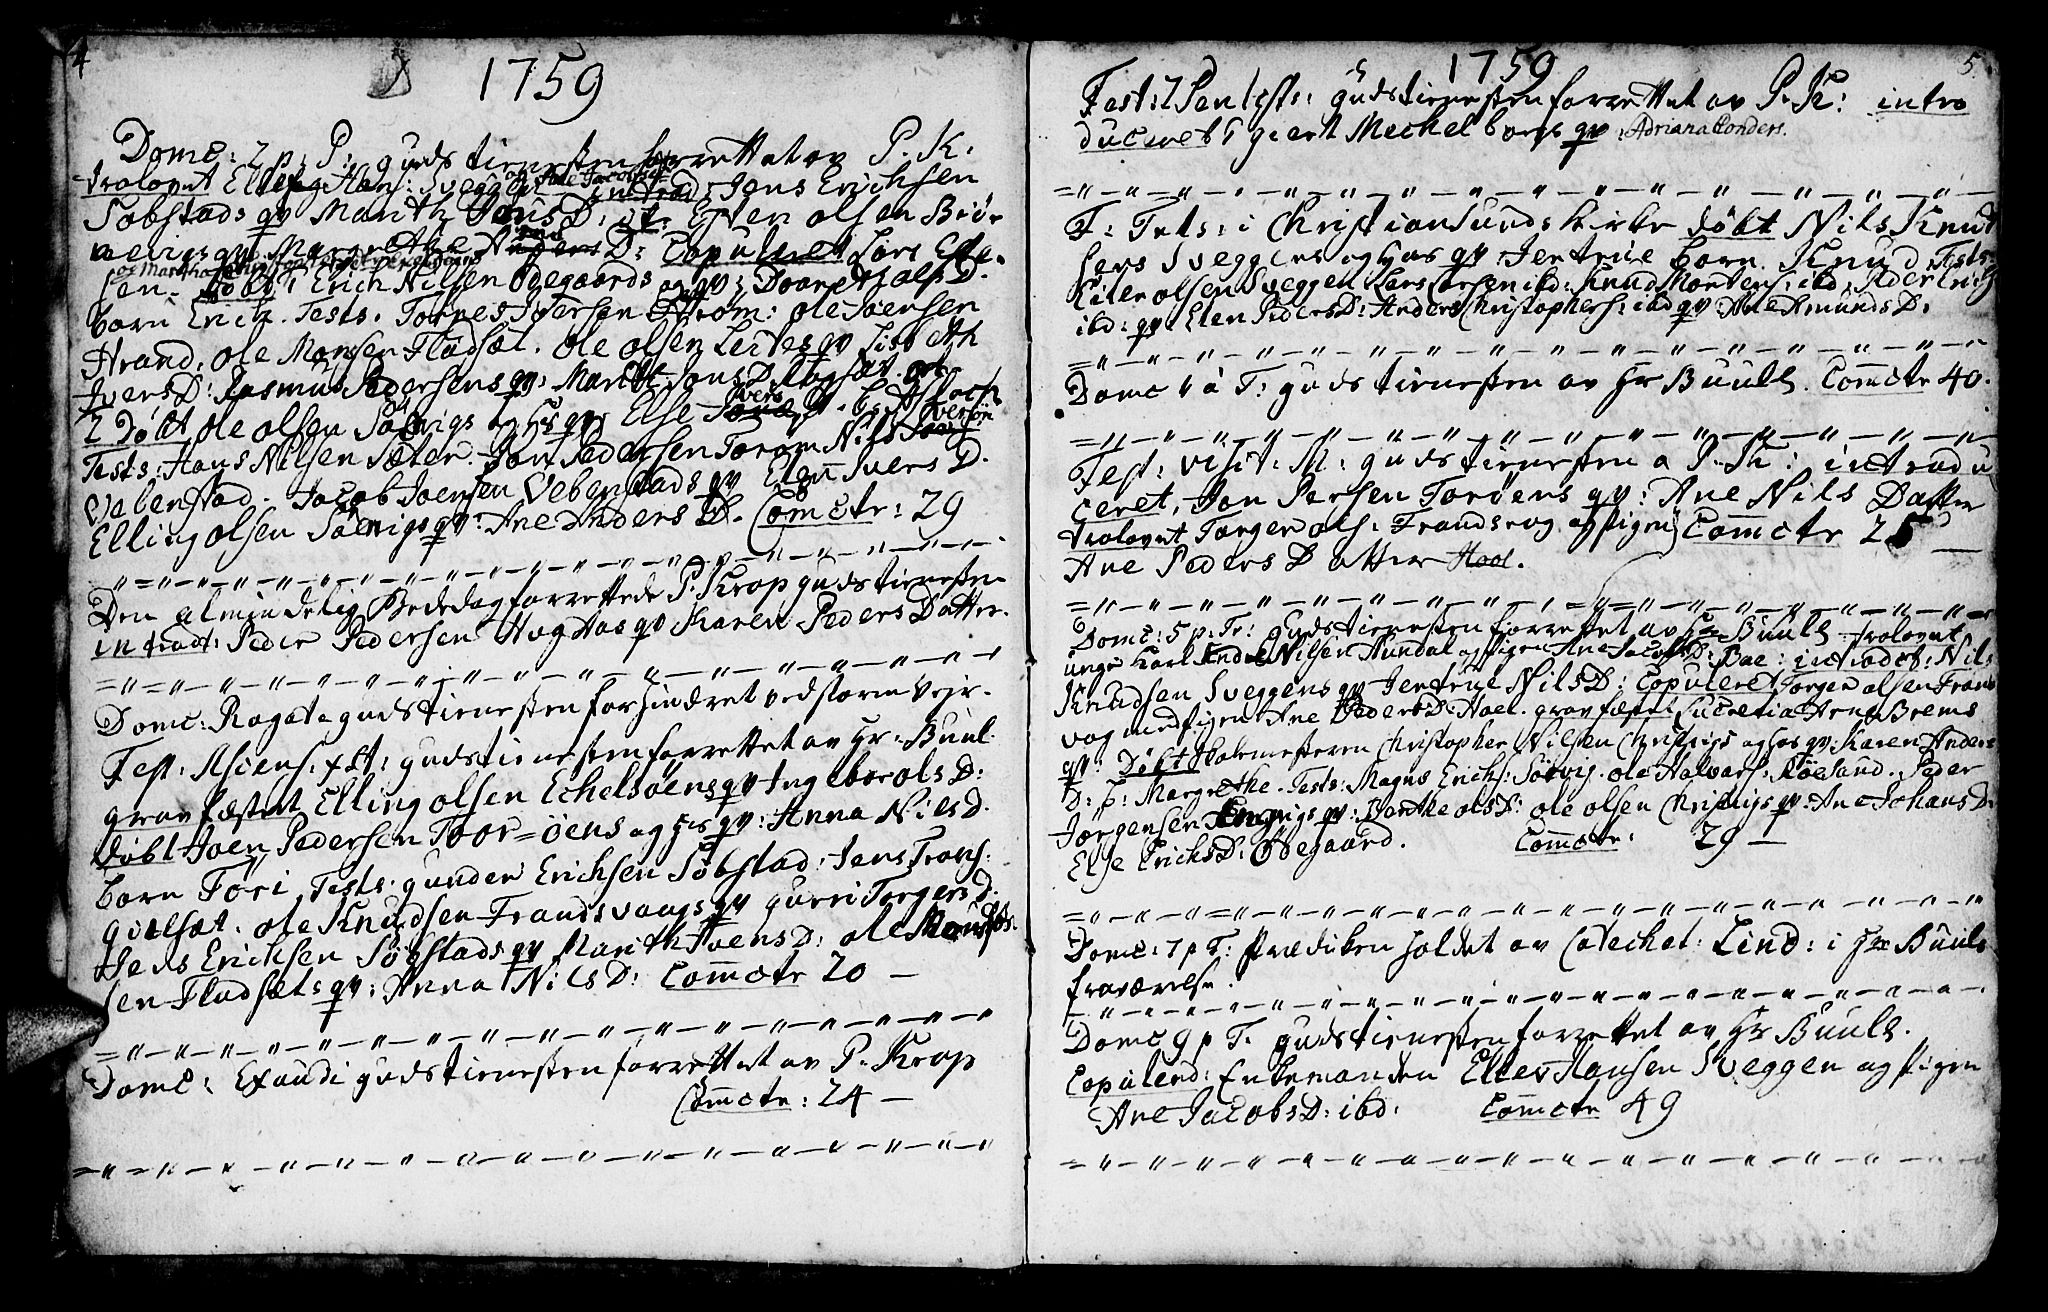 4
1759
Domc: 2 p: P: gudstienesten forrettet av P. K.
trolovet Ellef Hans: Sveggen og Ane Jacobs introd: Jens Erichsen
Søbstads qv Marith D: it: Esten olsen Biør
nevigs qv Margrethe Anders D: Copuleret Lars Este-
sen og Martha
døbt: Erich Nilsen Ødegaards og qv: Doardt ols D.
barn Erich. Tests. Iversen Strøm: ole Joensen
Strand, ole Monsen Fladsæt. ole olsen Leites qv Lisbeth
Ivers D: Rasmus Pedersens qv: Marit Jons D.
2 Døbt ole olsen Søevigs og Hs qv Else Ivers D.
Tests: Hans Nilsen Sæter. Jon Pedersen Torøen Nils Iversøn
Vebenstad. Jacob Joensen Vebenstads qv Elen Ivers D.
Elling olsen Søevigs qv: Ane Anders D. Comctr: 29
Den almindelig Bededag forrettede P. Krop gudstienesten
introd: Peder Pedersen qv Karen Peders Datter.
Domc: Rogate gudstienesten forhindret ved storm Vejr.
Fest: Asiens: xsti: gudstienesten forrettet av Hr. Buul.
gravfæstet Elling olsen Echelsøens qv Ingebor ols D:
døbt Joen Pedersen Toor=øens og Hs qv: Anna Nils D.
barn Tøri, Tests: gunder Erichsen Søbstad: Jens Trons:
gulsæt. ole Knudsen Frandsvaags qv gurri Torgers D.
Jens Erichsen Søbstads qv Marith Svens D: ole Mon
sen Fladsæts qv: Anna Nils D: Comctr 20 -
Domc: Exaudi gudstienesten forrettet av P. Krop
Comctr: 24 -
5.
1759
Fest: 2 Pentcst: gudstienesten forrettet av P. K: intro
duceret giert Mechelborgs qv: Adriana Conders.
F: Trts: i Christiansunds kirke døbt Nils Knud
sens Sveggens og Hs qv: Jertrue barn. Knud Tests:
olsen Sveggen Lars Larsen ibd: Knud Mortens: ibd. Peder Erich
ibd: qv: Elen Peders D: Anders Christophers: ibd qv Ane Amunds D:
Domc 1 a T: gudstienesten av Hr Buuls. Comctr 40.
Fest: visit: M: gudstienesten a P. K: introdu
ceret, Jon Persen Torøens qv: Ane Nils Datter
trolovet Torger ols: Frandsvog og pigen Comctr 25
Ane Peders Datter Hoel.
Domc: 5 p: Tr: gudstienesten forrettet av Hr Buuls trolovet
unge karl Endre Nilsen Aundal og pigen Ane Jacobs D: Bae: introdct: Nils
Knudsen Sveggens qv Jertrue Nils D: Copuleret Torger olsen Frans
vog med pigen Ane Peders D: Hoel. gravfæstet Lucretia Arne Brems
qv: Døbt Skolemesteren Christopher Nilsen Christvigs og Hs qv: Karen Anders
D: p: Margrethe. Tests: Magnus Erichs: Søevig. ole Halvars: Røesand. Peder
Jørgensen qv: Dorthe ols D: ole olsen Christvigs qv: Ane Johans D:
Else Erichs D: Ødegaard. Comctr: 29 -
Domc: 7 p T: Prædiken holdet av Catechet: Lind: i Hr Buuls
fraværelse.
Domc 9 p T. gudstienesten forrettet av Hr Buuls.
Copulerd: Enkemanden Ellev Hansen Sveggen og pigen
Ane Jacobs D: ibd: Comctr 49